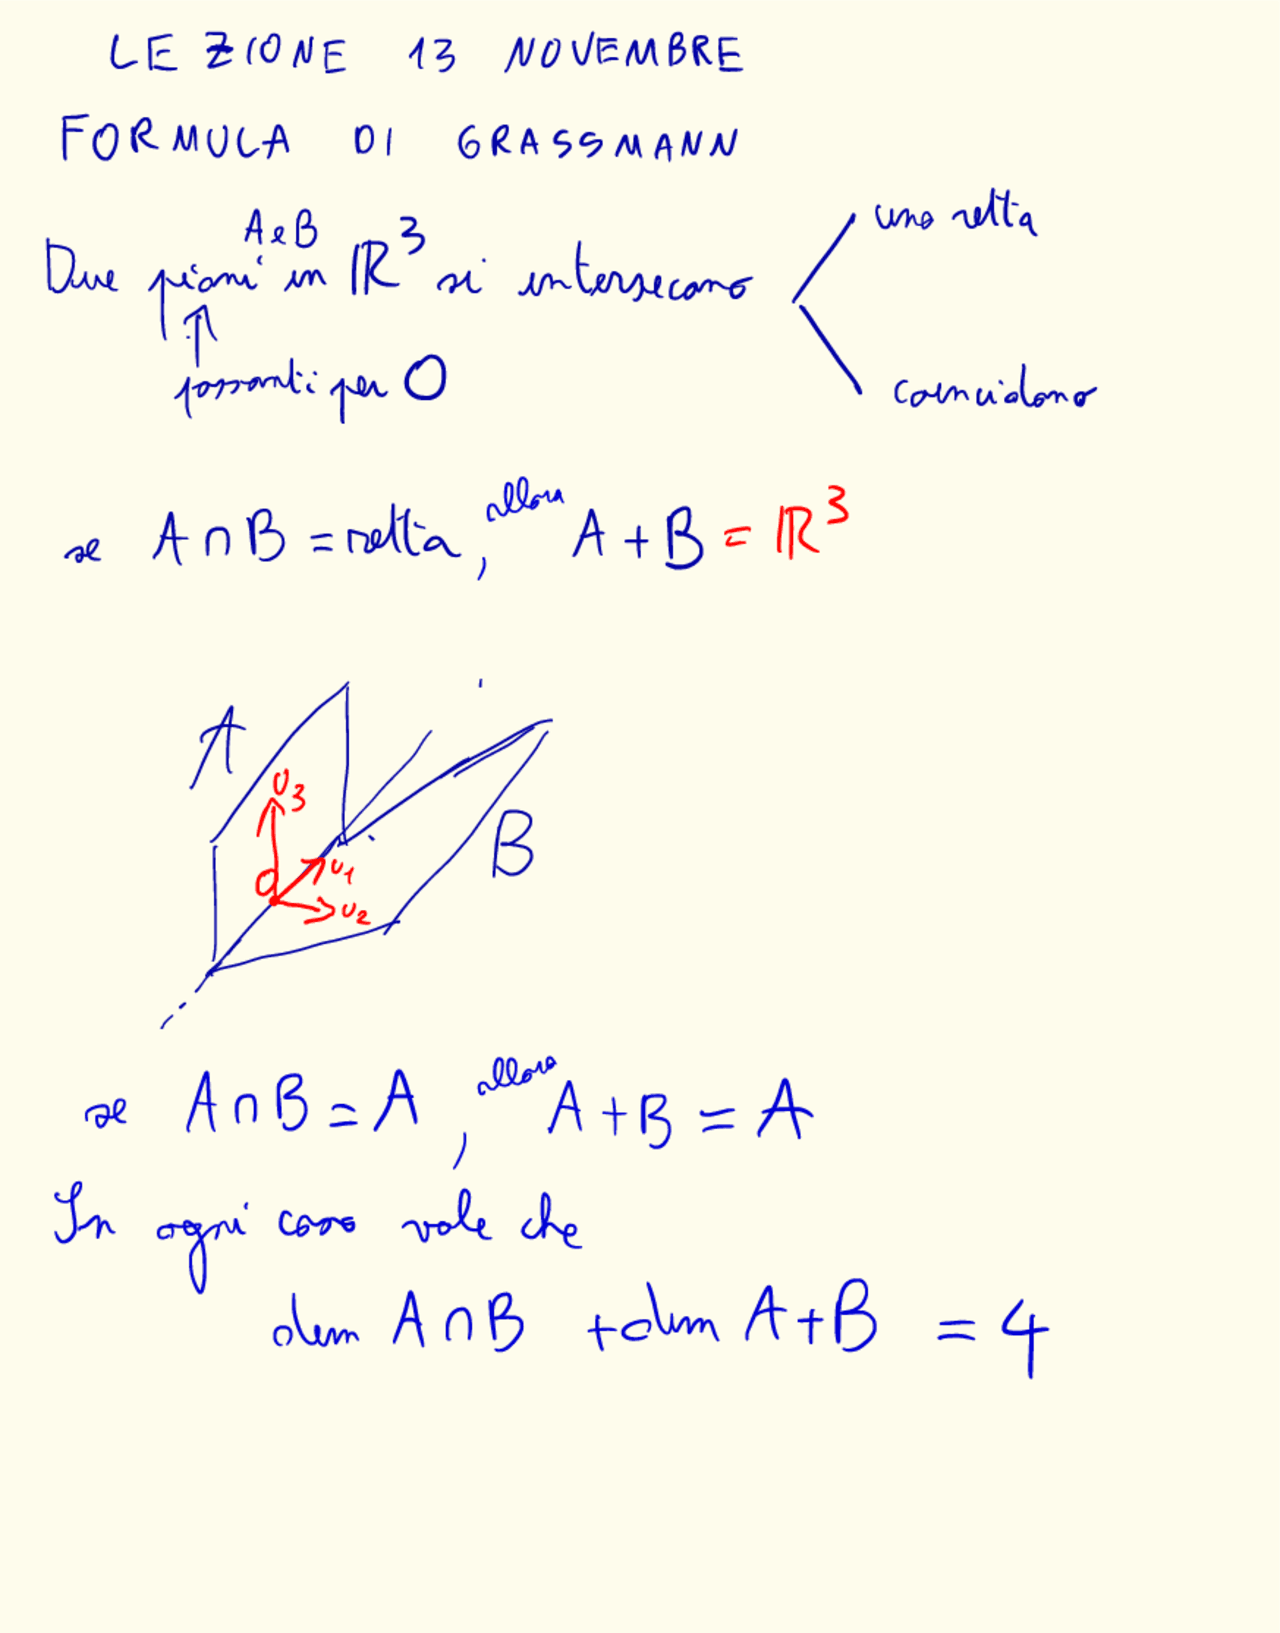 LEZIONE 13 NOVEMBRE
FORMULA DI GRASSMANN
A e B
Due piani in ℝ³ si intersecano
una retta
passanti per O
coincidono
se A ∩ B = retta, allora A + B = ℝ³
A
v₃
B
O
v₁
v₂
se A ∩ B = A, allora A + B = A
In ogni caso vale che
dim A ∩ B + dim A + B = 4